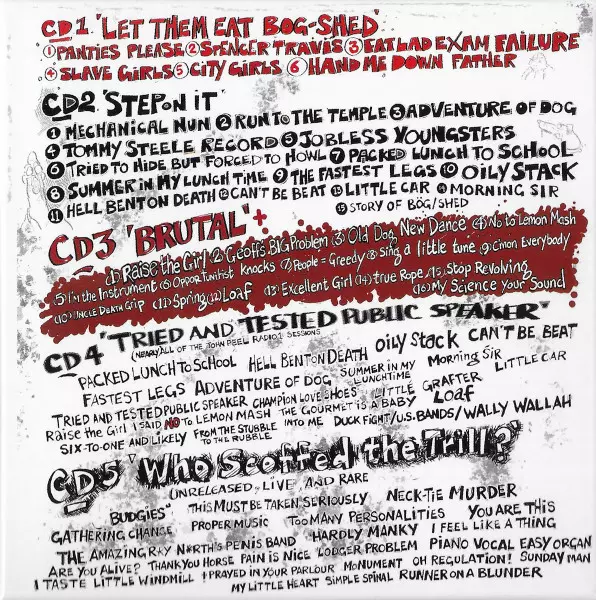 CD 1 'LET THEM EAT BOG-SHED'
① PANTIES PLEASE ② SPENCER TRAVIS ③ FAT LAD EXAM FAILURE
④ SLAVE GIRLS ⑤ CITY GIRLS ⑥ HAND ME DOWN FATHER
CD2 'STEP ON IT'
① MECHANICAL NUN ② RUN TO THE TEMPLE ③ ADVENTURE OF DOG
④ TOMMY STEELE RECORD ⑤ JOBLESS YOUNGSTERS
⑥ TRIED TO HIDE BUT FORCED TO HOWL ⑦ PACKED LUNCH TO SCHOOL
⑧ SUMMER IN MY LUNCH TIME ⑨ THE FASTEST LEGS ⑩ OILY STACK
⑪ HELL BENT ON DEATH ⑫ CAN'T BE BEAT ⑬ LITTLE CAR ⑭ MORNING SIR
⑮ STORY OF BÖG/SHED
CD3 'BRUTAL' +
(1) Raise the Girl (2) Geoff's BIG Problem (3) Old Dog New Dance (4) No to Lemon Mash
(5) I'm the Instrument (6) Opportunist Knocks (7) People = Greedy (8) Sing a little tune (9) C'mon Everybody
(10) UNCLE DEATH Grip (11) Spring (12) Loaf (13) Excellent Girl (14) true Rope (15) Stop Revolving
(16) My Science your Sound
CD4 'TRIED AND TESTED PUBLIC SPEAKER'
(NEARLY ALL OF THE JOHN PEEL RADIO 1 SESSIONS
PACKED LUNCH TO SCHOOL HELL BENT ON DEATH OILY STACK CAN'T BE BEAT
FASTEST LEGS ADVENTURE OF DOG SUMMER IN MY LUNCHTIME Morning Sir LITTLE CAR
TRIED AND TESTED PUBLIC SPEAKER CHAMPION LOVE SHOES LITTLE GRAFTER
Raise the Girl I SAID NO TO LEMON MASH THE GOURMET IS A BABY Loaf
SIX-TO-ONE AND LIKELY FROM THE STUBBLE TO THE RUBBLE INTO ME DUCK FIGHT/U.S.BANDS/WALLY WALLAH
CD5 'Who Scoffed the Trill?'
UNRELEASED, LIVE AND RARE
BUDGIES" THIS MUST BE TAKEN SERIOUSLY NECK-TIE MURDER
GATHERING CHANGE PROPER MUSIC TOO MANY PERSONALITIES YOU ARE THIS
THE AMAZING ROY N*RTH'S PENIS BAND HARDLY MANKY I FEEL LIKE A THING
ARE YOU ALIVE? THANKYOU HORSE PAIN IS NICE LODGER PROBLEM PIANO VOCAL EASY ORGAN
I TASTE LITTLE WINDMILL I PRAYED IN YOUR PARLOUR MONUMENT OH REGULATION! SUNDAY MAN
MY LITTLE HEART SIMPLE SPINAL RUNNER ON A BLUNDER